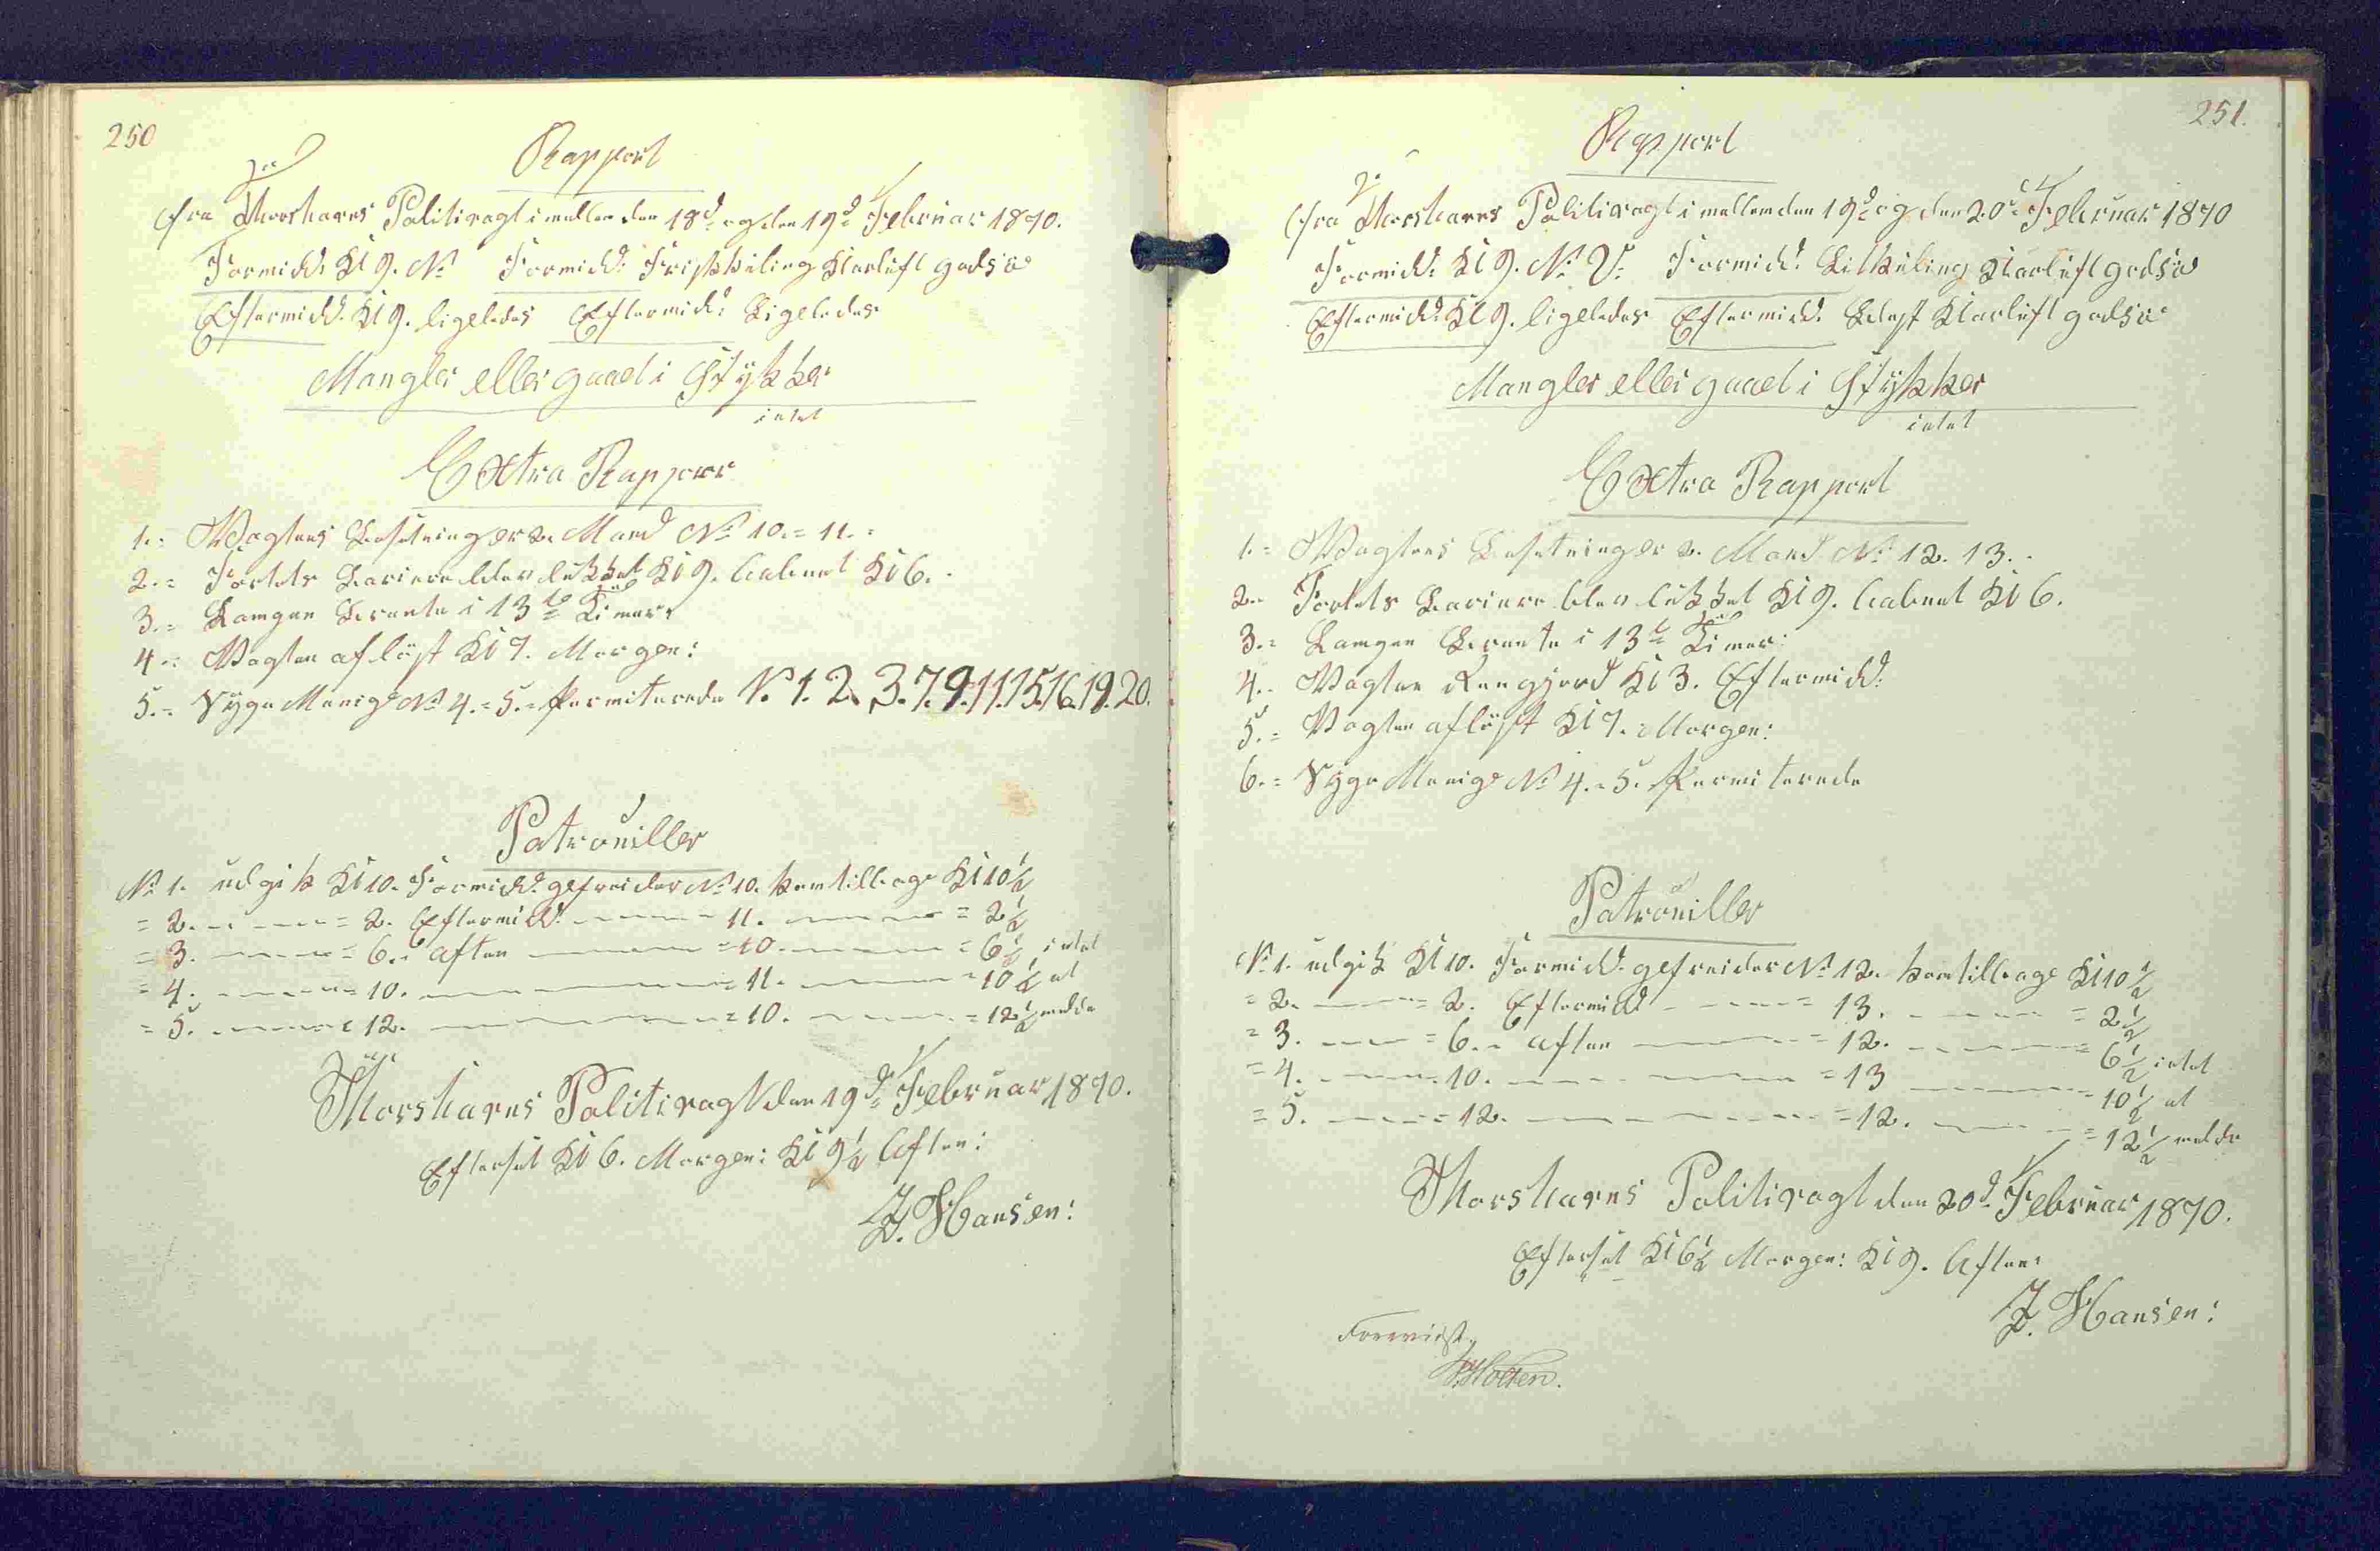 250
Rapport
fra Thorshavns Politivagt imellem den 18d og den 19d Februar 1870.
Formidd. Kl 9. No Formidd: Frisk Kuling Klarluft godsø
Eftermidd. Kl 9. ligeledes Eftermidd: Ligeledes
Mangler eller gaaet i Stykker
intet
Extra Rapport
1.= Vagtens Besætning er 2. Mand No 10.= 11.=
2.= Fortets Barriere blev lukket Kl 9. aabnet Kl 6.
3.= Lampen Brændte i 13 Timer
4.= Vagten afløst Kl 7. Morgen:
5.= Syge Menige No 4.= 5.= Permiterede N. 1. 2. 3. 7. 9. 11. 15. 16. 19. 20.
Patrouiller
No 1. udgik Kl 10. Formidd. gefreider No 10. kom tilbage Kl 10½
= 2. = 2. Eftermidd. 11. = 2½
= 3. = 6. = Aften = 10. = 6½ intet
= 4. = 10. = 11. = 10½ at
= 5. = 12. = 10. = 12½ melde
Thorshavns Politivagt den 19d Februar 1870.
Efterset Kl 6. Morgen: Kl 9½ Aften:
J. Hansen:
251.
Rapport
fra Thorshavns Politivagt imellem den 19d og den 20d Februar 1870
Formidd: Kl 9. No V. Formidd. Lil Kuling Klarluft godsø
Eftermidd: Kl 9. ligeledes Eftermidd. Klarluft godsø
Mangler eller gaaet i Stykker
intet
Extra Rapport
1.= Vagtens Besætning er 2. Mand No 12. 13.
2. Fortets Barriere blev lukket Kl 9. aabnet Kl 6.
3.= Lampen Brændte i 13 Timer
4. Vagten Rengjord Kl 3. Eftermidd:
5.= Vagten afløst Kl 7. Morgen:
6.= Syge Menige No 4. = 5. Permiterede
Patrouiller
No 1. udgik Kl 10. Formidd. gefreider No 12. kom tilbage Kl 10½
= 2. = 2. Eftermidd = 13. = 2½
= 3. = 6. = Aften = 12. = 6½ intet
= 4. 10. = 13 10½ at
= 5. = 12. = 12. = 12½ melde
Thorshavns Politivagt den 20d Februar 1870.
Efterset Kl 6½ Morgen: Kl 9. Aften:
J. Hansen:
Foreviist
Holten.